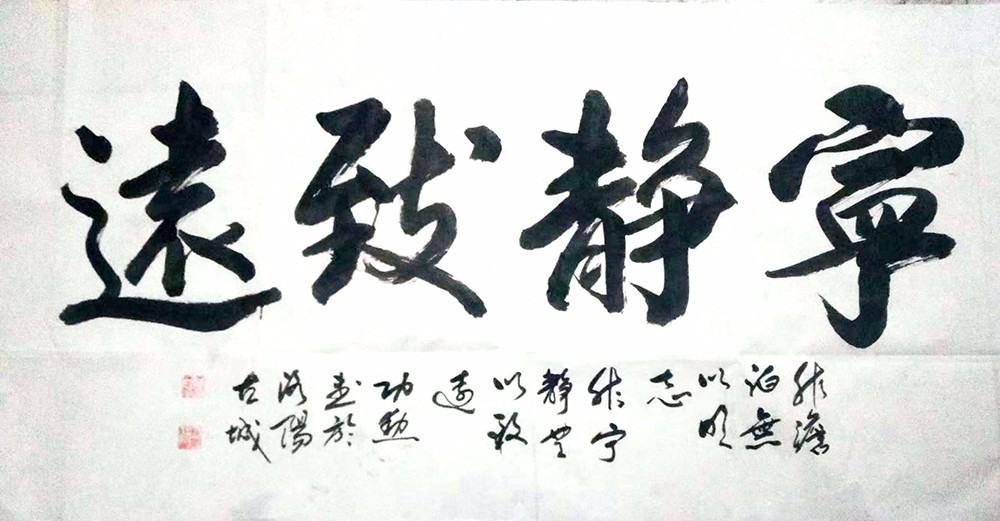 寧靜致遠
非澹
泊無
以明
志
非宁
靜無
以致
遠
功勲
書於
洛陽
古城